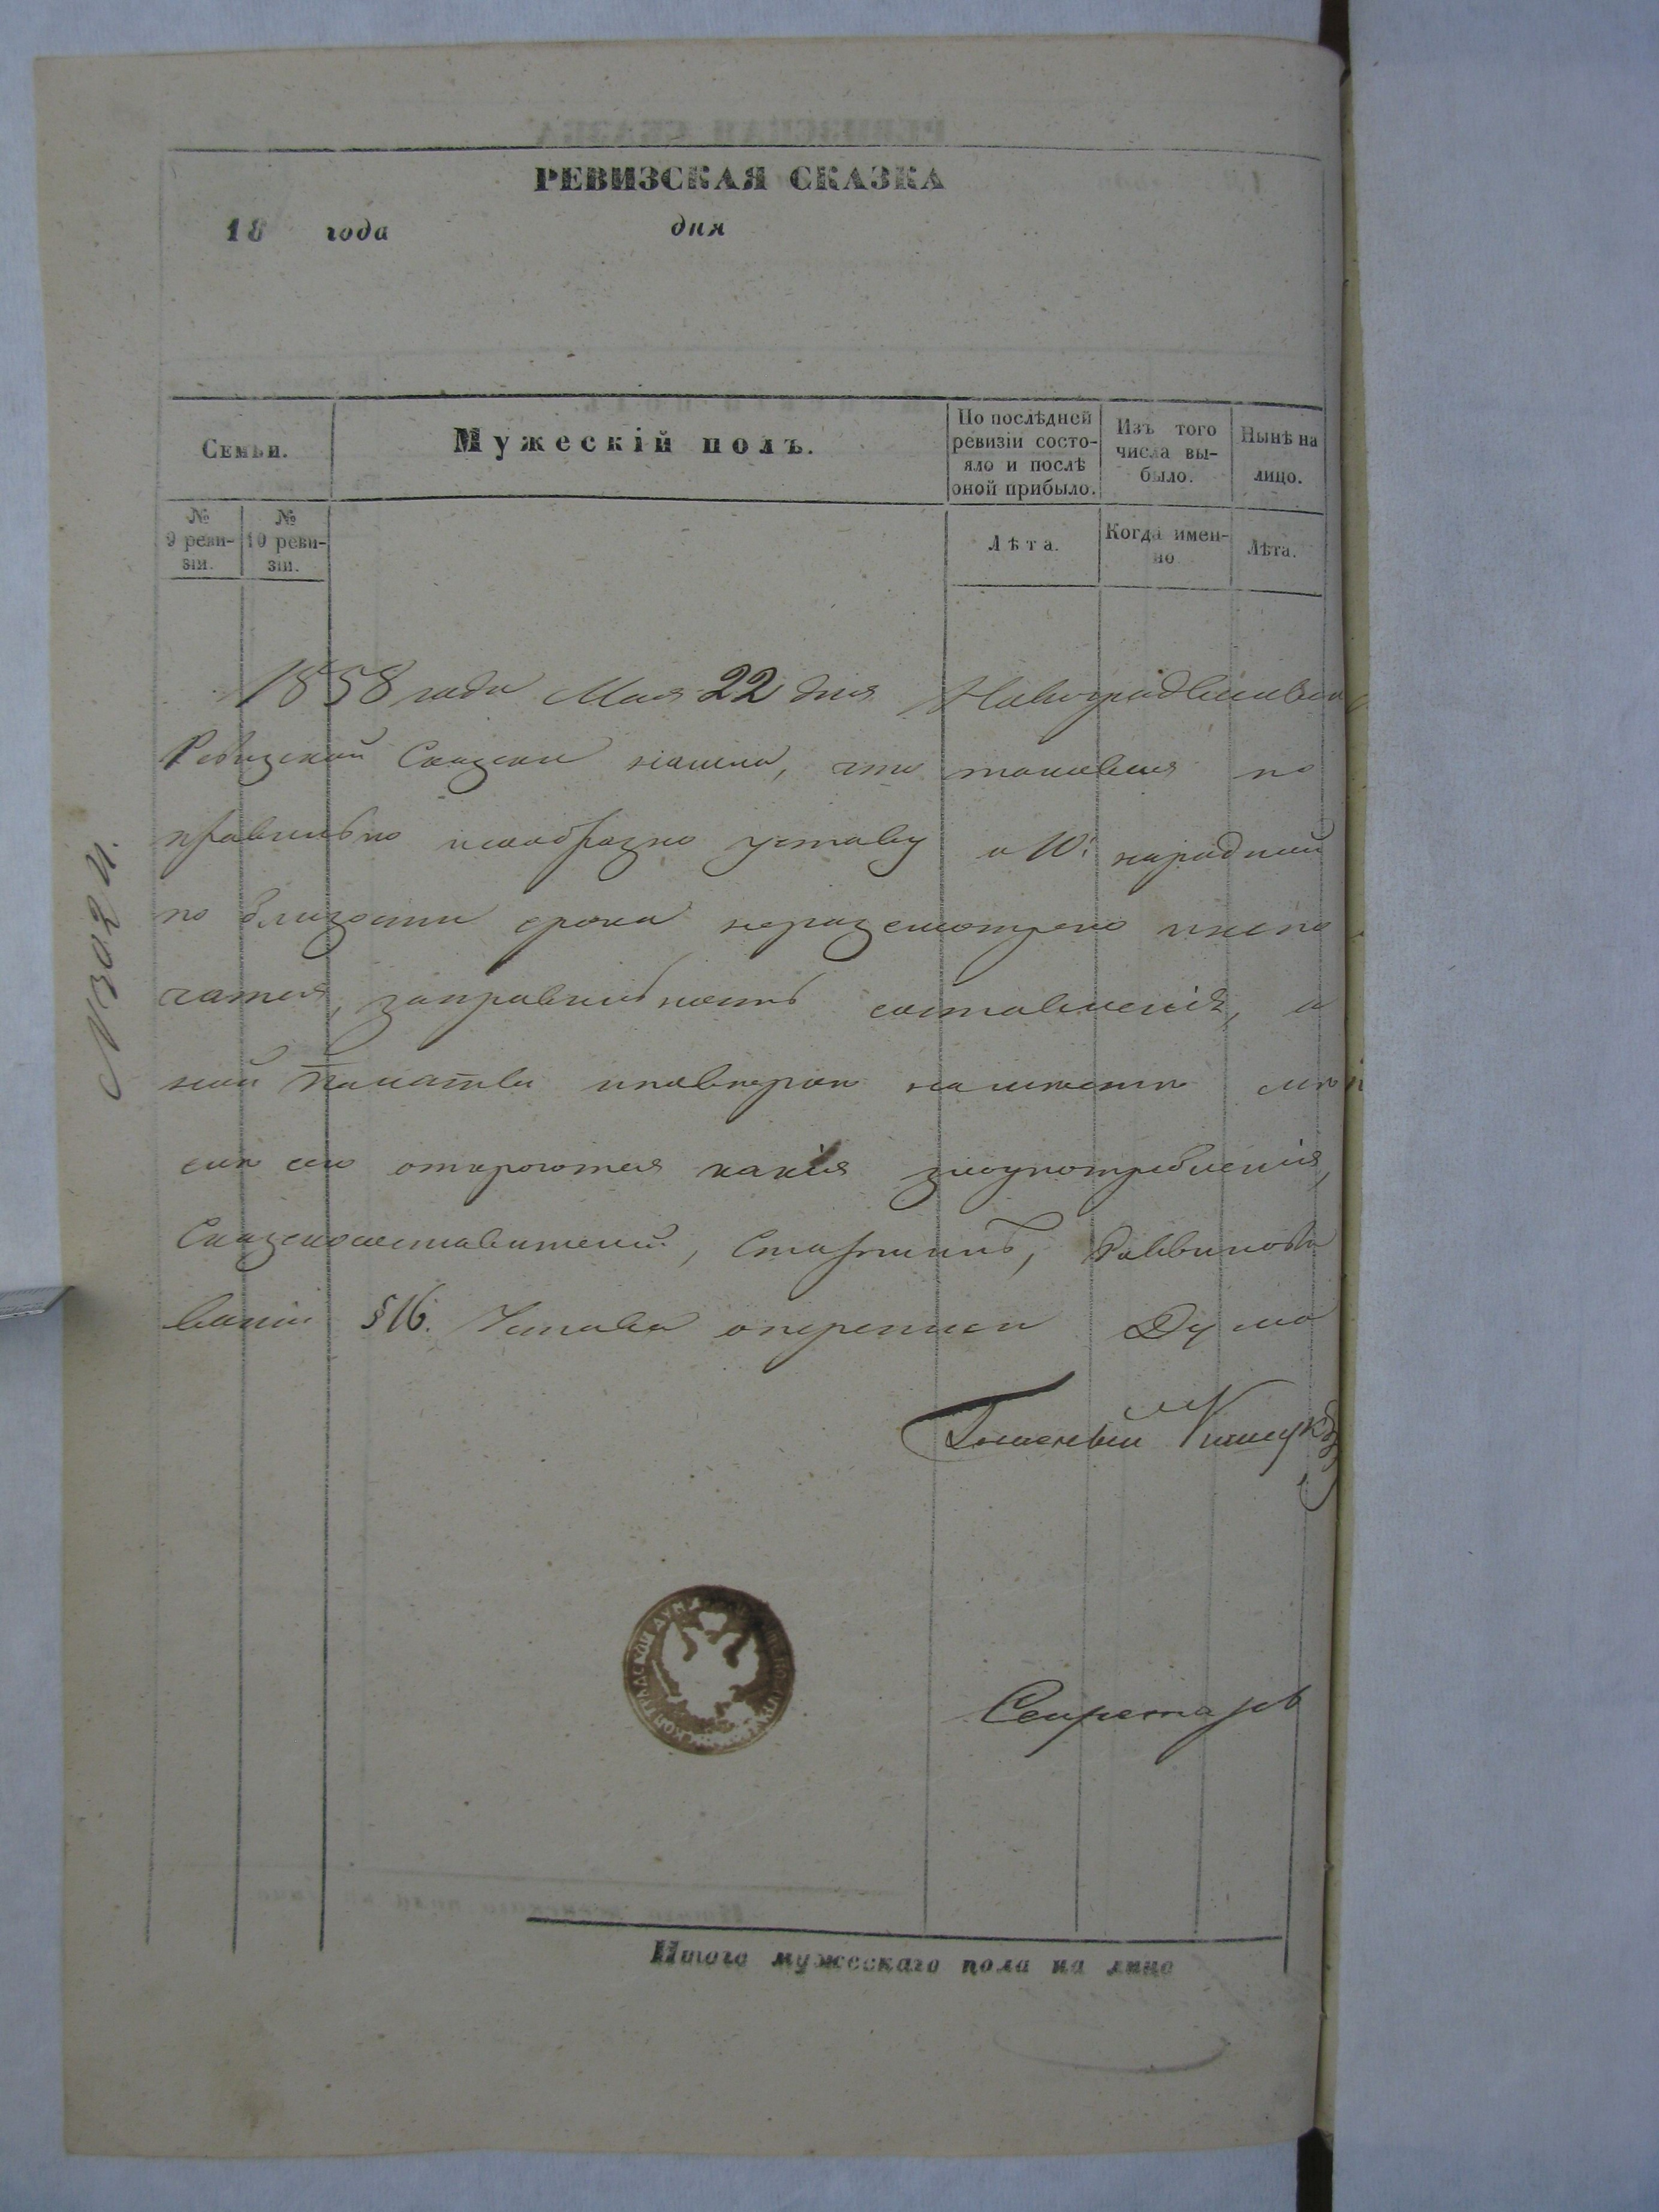 РЕВИЗСКАЯ СКАЗКА
18 года дня
Семьи.
Мужескій полъ.
По послѣдней ревизіи состо-
яло и послѣ
оной прибыло.
Изъ того
числа вы-
было.
Нынѣ на
лицо.
№
9 реви-
зіи.
№
10 реви-
зіи.
Лѣта.
Когда имен-
но
Лѣта.
1858 года Мая 22 дня Новоградволынск
Ревизской Сказки нашла, что таковая по
правильно исообразно уставу о 10й народной
по близости срока неразсмотрено
чатья, заправильность составленія, а
ной Палаты
сию откроются какія злоупотребленія,
Сказкосоставителей, Старшинъ, Раввиновъ
ваніи §16. Устава опереписи Дума
Гласный
Секретарь
Итого мужескаго пола на лицо
№302 й.